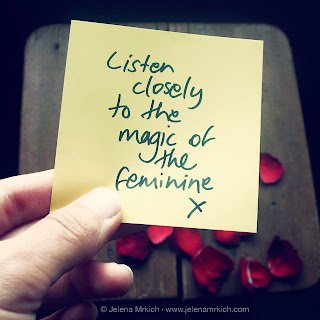 Listen
closely
to the
magic of
the
feminine
x
© Jelena Mrkich · www.jelenamrkich.com